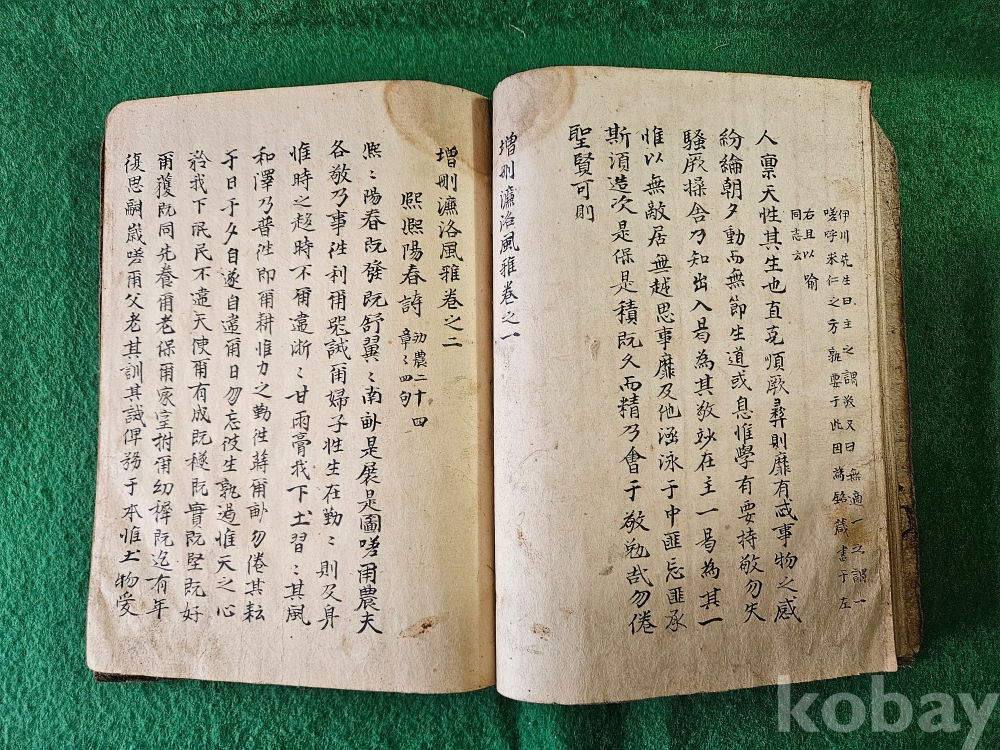 伊川先生曰主之謂敬又曰無適一之謂一
嗟呼求仁之方孰要于此因爲銘箴書于左
右且以喻
同志云
人禀天性其生也直克順厥彛則靡有忒事物之感
紛綸朝夕動而無節生道或息惟學有要持敬勿失
騐厥操舍乃知出入曷為其敬妙在主一曷為其一
惟以無敵居無越思事靡及他涵泳于中匪忘匪承
斯須造次是保是積既久而精乃會于敬勉哉勿倦
聖賢可則
增刪濂洛風雅卷之一
增刪濂洛風雅卷之二
熙熙陽春詩 勸農二十四章〻四句
熙〻陽春既發既舒翼〻南畝是展是圖嗟爾農夫
各敬乃事徃利爾器誡爾婦子性生在勤〻則及身
惟時之趍時不爾違淅〻甘雨膏我下土習〻其風
和澤乃普徃即爾耕惟力之勤徃蒔爾畝勿倦其耘
于日于夕自遂自遑爾日勿忘彼生孰遏惟天之心
矜我下民民不違天使爾有成既穟既實既堅既好
爾穫既同先養爾老保爾家室拊爾幼穉既迄有年
復思嗣歲嗟爾父老其訓其誡俾務于本惟土物愛
kobay